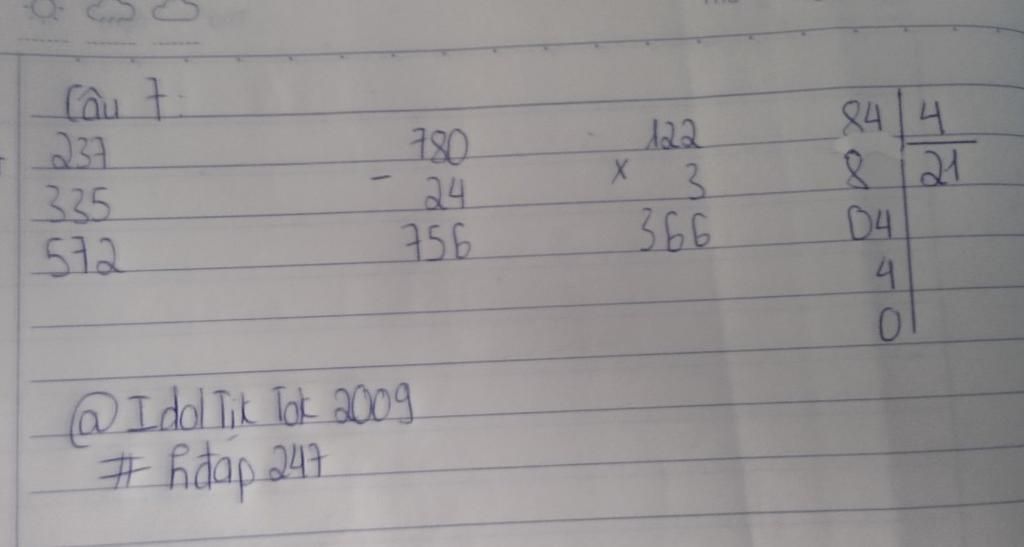 Câu 7:
237 780 122 84 4
335 - 24 x 3 8 21
572 756 366 04
4
0
@IdolTikTok2009
#hđáp247